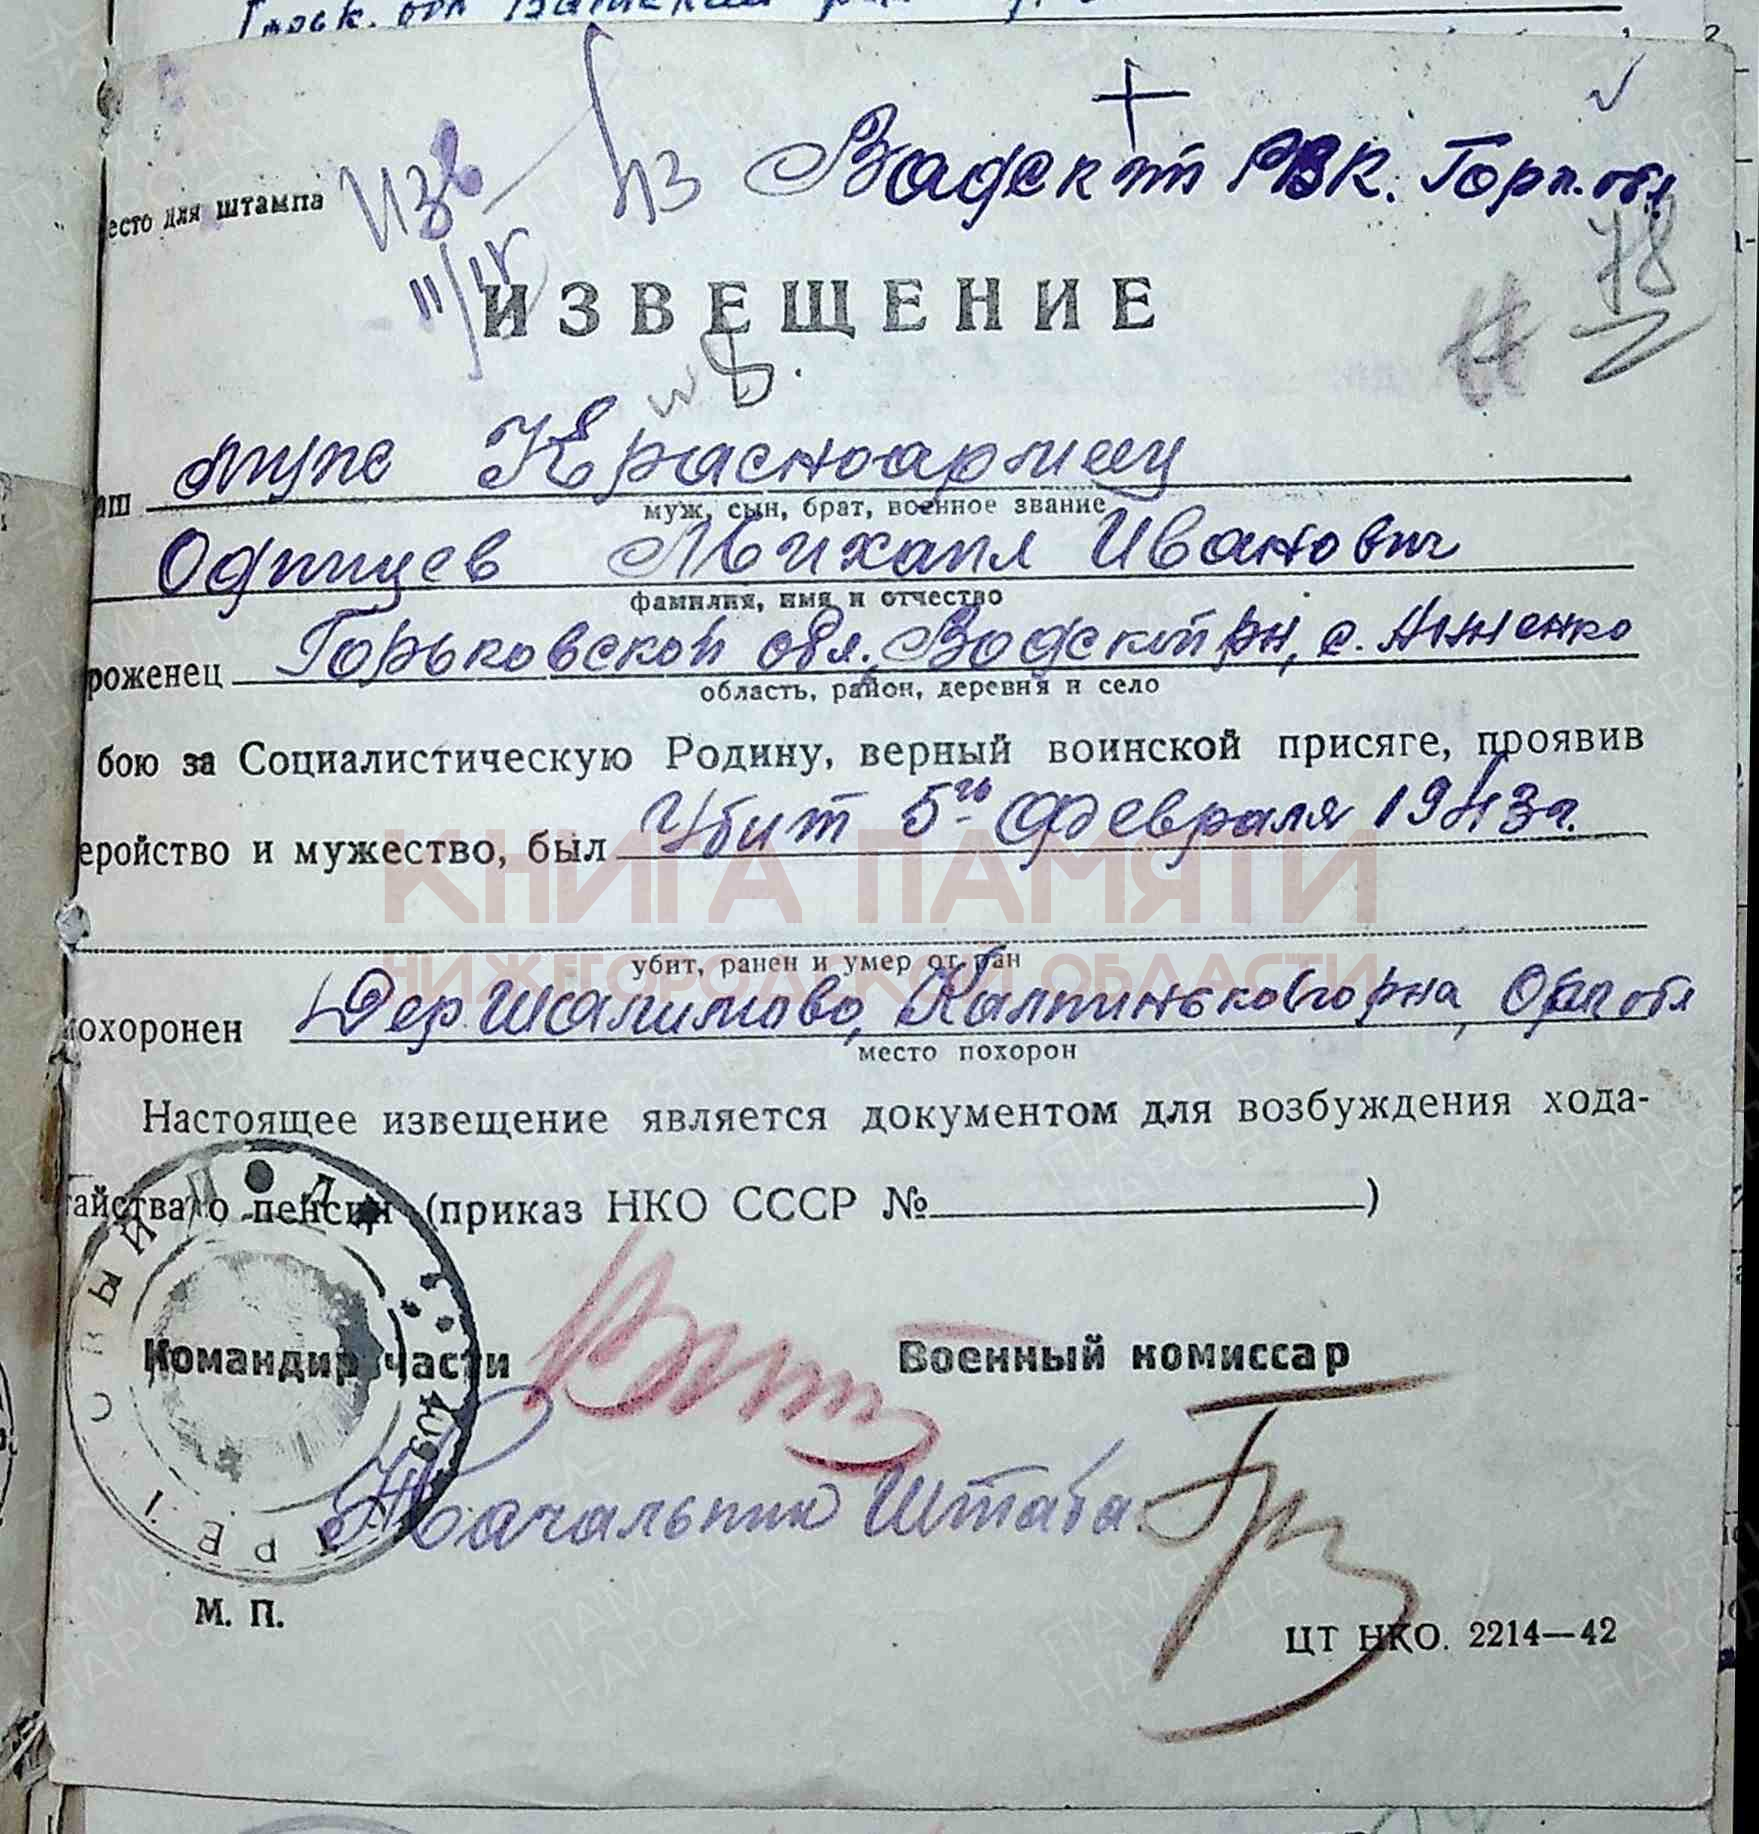 есто для штампа
Изв
Вадский РВК. Горьк. обл
78
ИЗВЕЩЕНИЕ
аш муж Красноармеец
муж, сын, брат, военное звание
Михаил Иванович
фамилия, имя и отчество
роженец Горьковской обл. Вадский рн, с.
область, район, деревня и село
бою за Социалистическую Родину, верный воинской присяге, проявив
еройство и мужество, был Убит 5го Февраля 1943г.
КНИГА ПАМЯТИ
убит, ранен и умер от ран
НИЖЕГОРОДСКОЙ ОБЛАСТИ
охоронен Дер. Шалимово, обл
место похорон
Настоящее извещение является документом для возбуждения хода-
тайства о пенсии (приказ НКО СССР №)
Командир части Военный комиссар
Начальник Штаба
М. П.
ЦТ НКО. 2214—42
ПАМЯТЬ НАРОДА